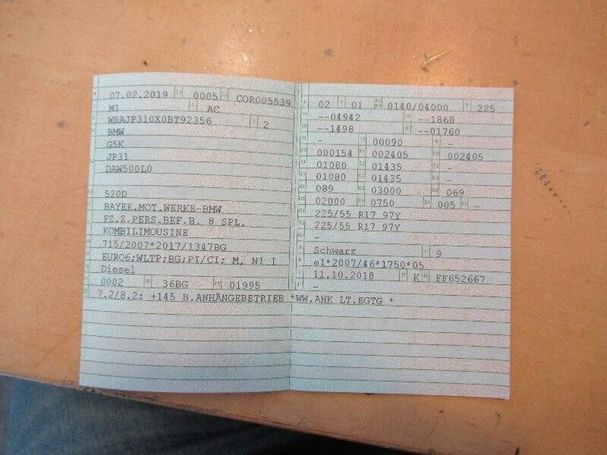 07.02.2019 0005 COR005539
M1 AC
WBAJP310X0BT92356 2
BMW
G5K
JP31
DAW500L0
520D
BAYER.MOT.WERKE-BMW
FZ.Z.PERS.BEF.B. 8 SPL.
KOMBILIMOUSINE
715/2007*2017/1347BG
EURO6;WLTP;BG;PI/CI; M, N1 I
Diesel
0002 36BG 01995
7.2/8.2: +145 B.ANHÄNGEBETRIEB *WW.AHK LT.EGTG *
02 01 0140/04000 225
--04942 --1868
--1498 --01760
- 00090 -
000154 002405 002405
01080 01435 -
01080 01435 -
089 03000 069
02000 0750 005 -
225/55 R17 97Y
225/55 R17 97Y
-
Schwarz 9
e1*2007/46*1750*05
11.10.2018 K FF652667